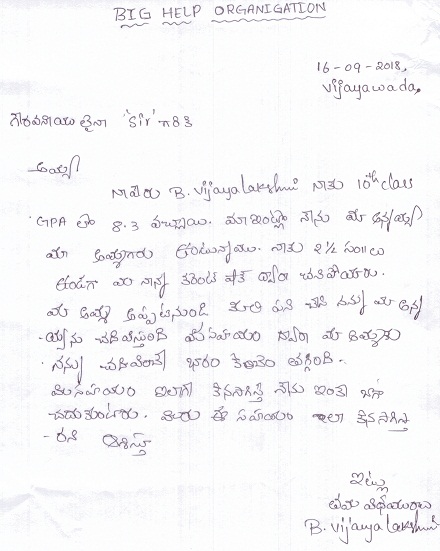 BIG HELP ORGANIGATION
16-09-2018,
Vijayawada,
గౌరవనీయు లైనా 'Sir' గారికి
అయ్యా
నా పేరు B. Vijaya Lakshmi నాకు 10th class
GPA లో 8.3 వచ్చాయి. మా ఇంట్లో నేను మా అన్నయ్య
మా అమ్మగారు ఉంటున్నాము. నాకు 2½ సం॥లు
ఉండగా మా నాన్న కరెంట్ షాక్ ద్వారా చనిపోయారు.
మా అమ్మ అప్పటినుండి కూలి పని చేసి నన్ను మా అన్న
-య్యను చదివిస్తుంది మీ సహయం ద్వారా మా అమ్మకు
నన్ను చదివించే భారం కొంచెం తగ్గింది.
మీ సహయం ఇలాగే కొనసాగిస్తే నేను ఇంకా బాగా
చదువుకుంటాను. మీరు ఈ సహయం ఇలా కొనసాగిస్తా
-రని ఆశిస్తూ
ఇట్లు
తమ విధేయురాలు
B. Vijaya Lakshmi